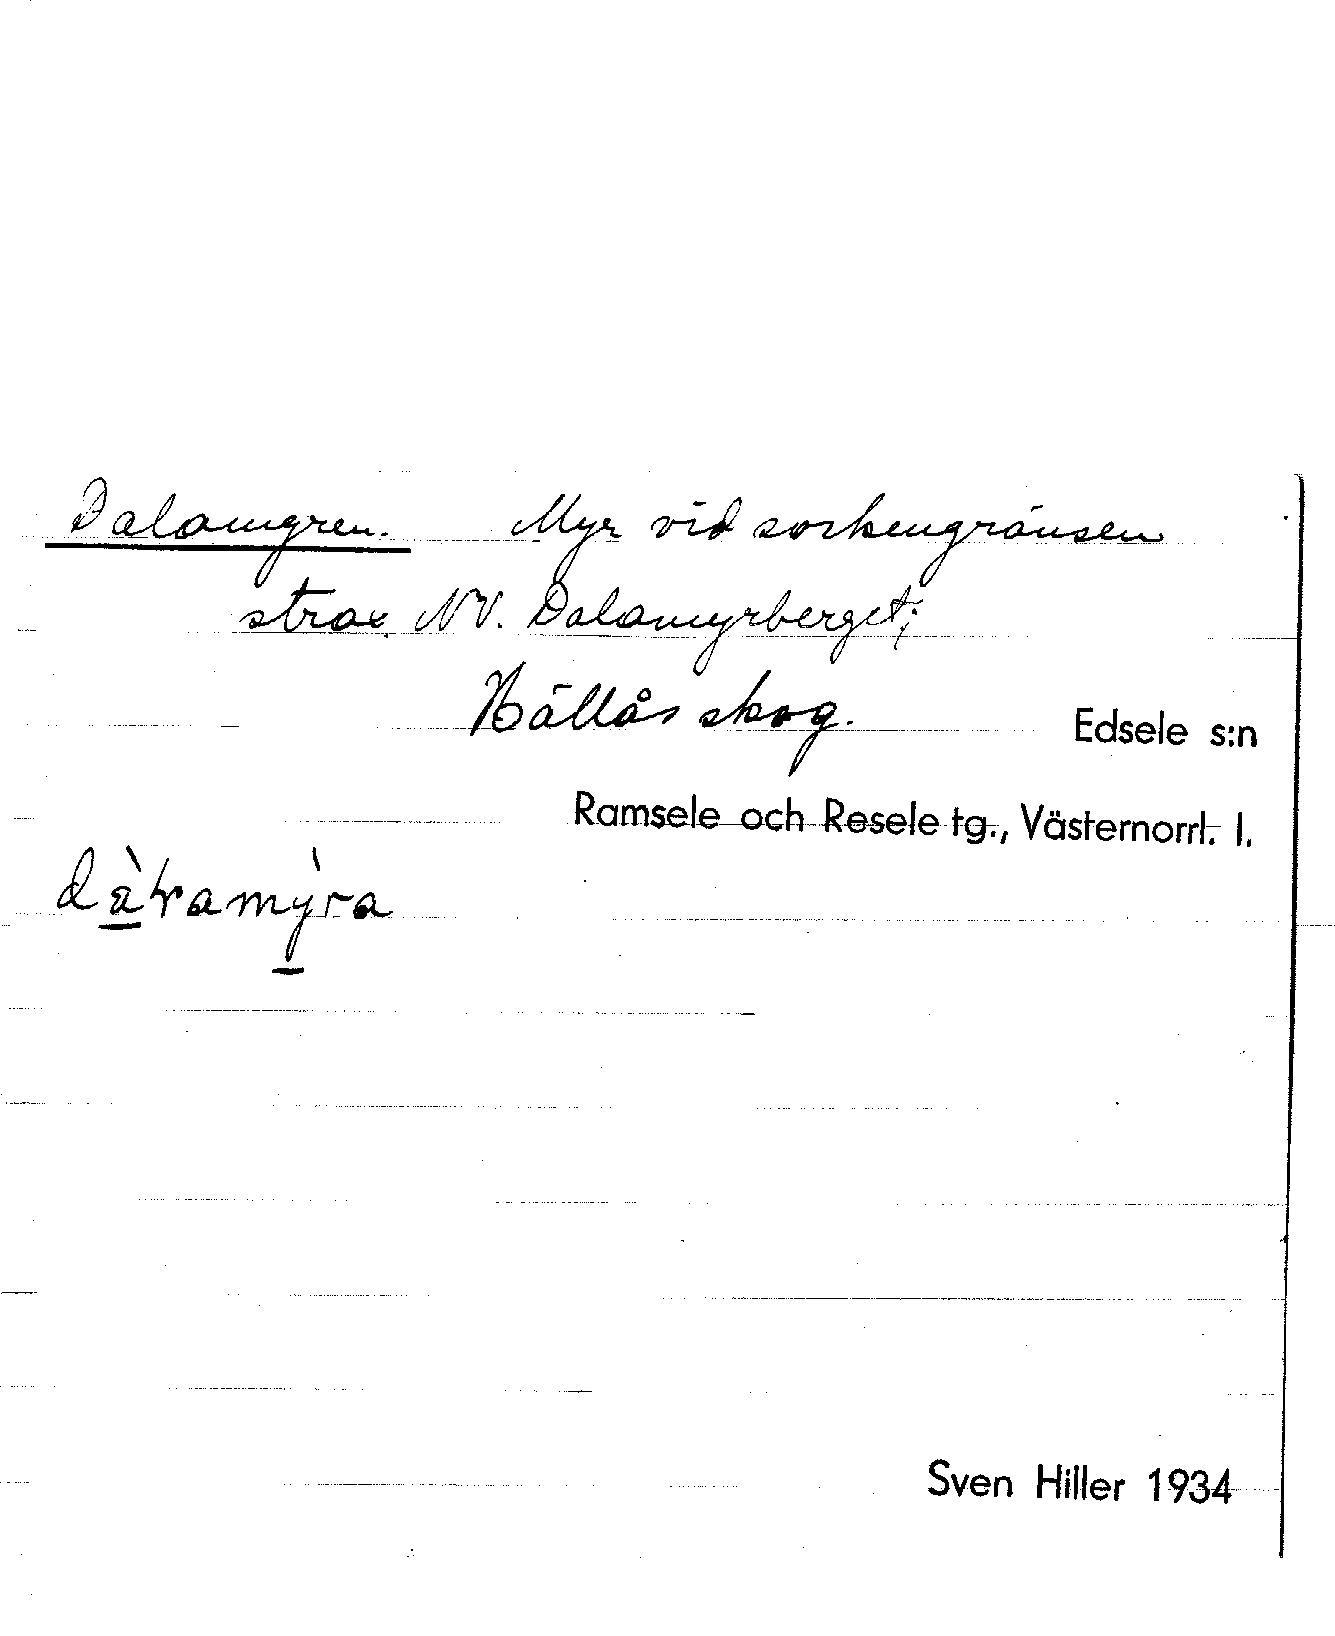 Dalamyren. Myr vid sockengränsen
strax NV. Dalamyrberget;
Hällås skog. Edsele s:n
Ramsele och Resele tg., Västernorrl. l.
Sven Hiller 1934